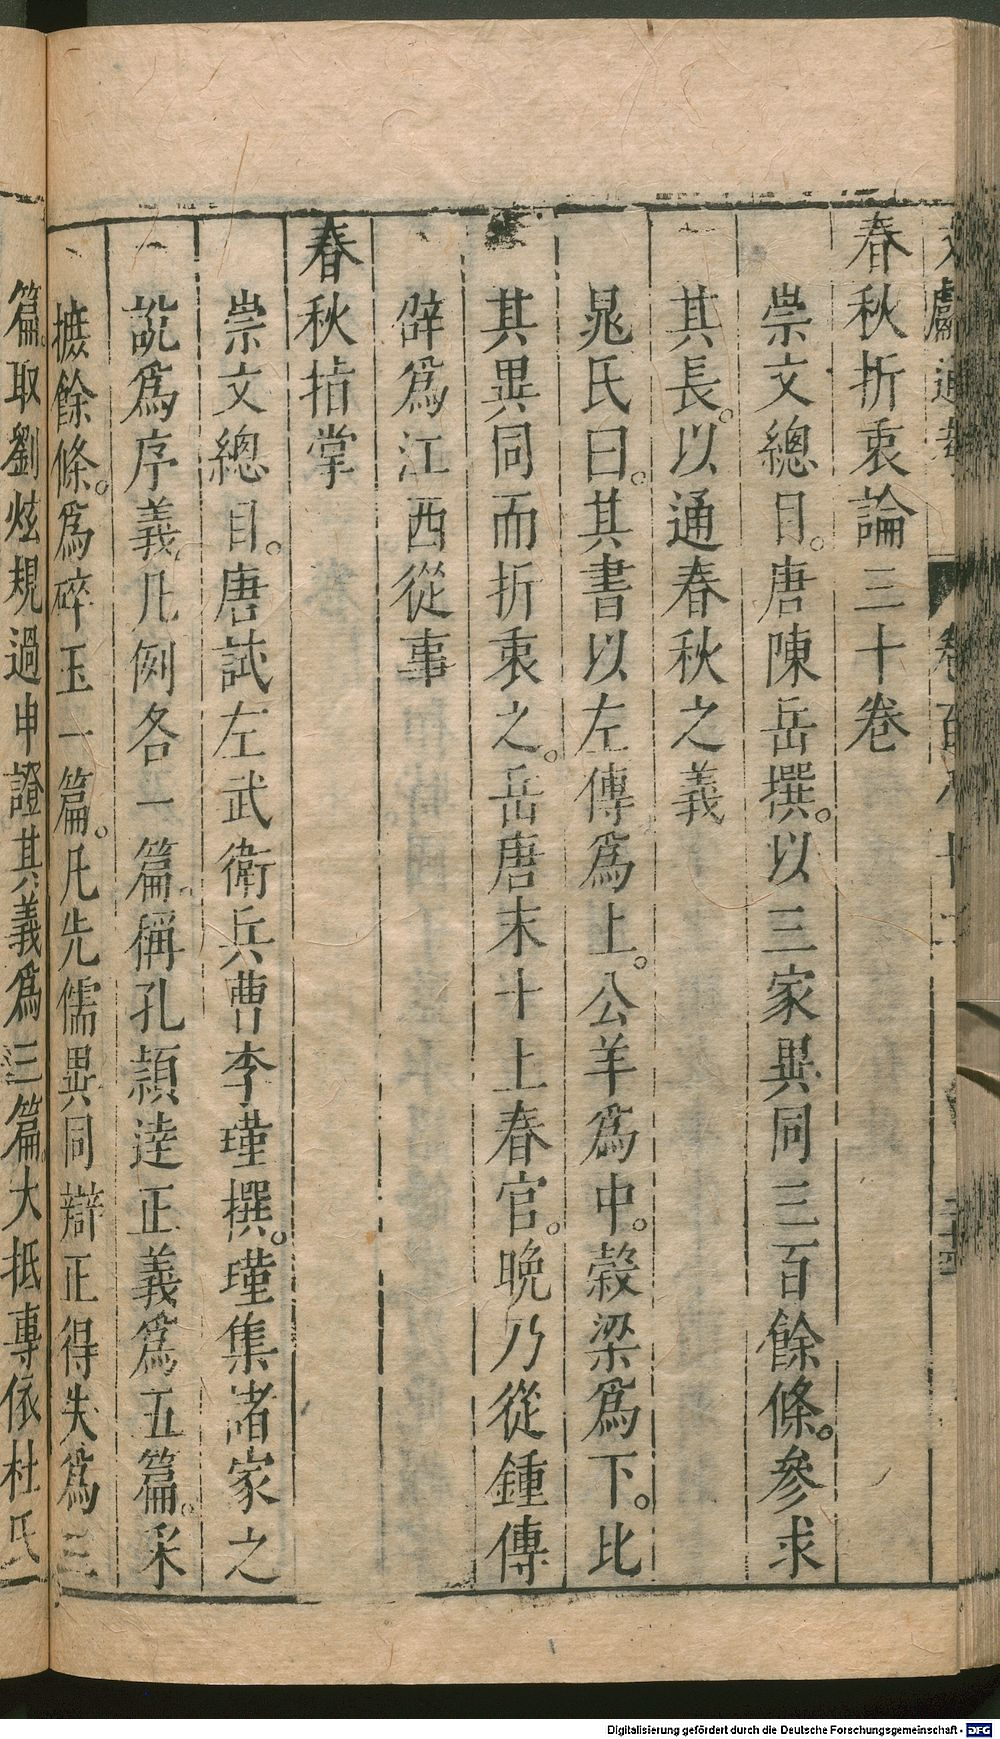 文獻通考 卷百八十二 三十四
春秋折衷論三十卷
崇文總目。唐陳岳撰。以三家異同三百餘條。參求
其長。以通春秋之義
晁氏曰。其書以左傳爲上。公羊爲中。穀梁爲下。比
其異同而折衷之。岳唐末十上春官。晚乃從鍾傳
辟爲江西從事
春秋指掌
崇文總目。唐試左武衛兵曹李瑾撰。瑾集諸家之
說爲序義。凡例各一篇。稱孔頴逹正義爲五篇。采
摭餘條。爲碎玉一篇。凡先儒異同辯正得失爲三
篇。取劉炫規過申證其義爲三篇。大抵專依杜氏
Digitalisierung gefördert durch die Deutsche Forschungsgemeinschaft - DFG